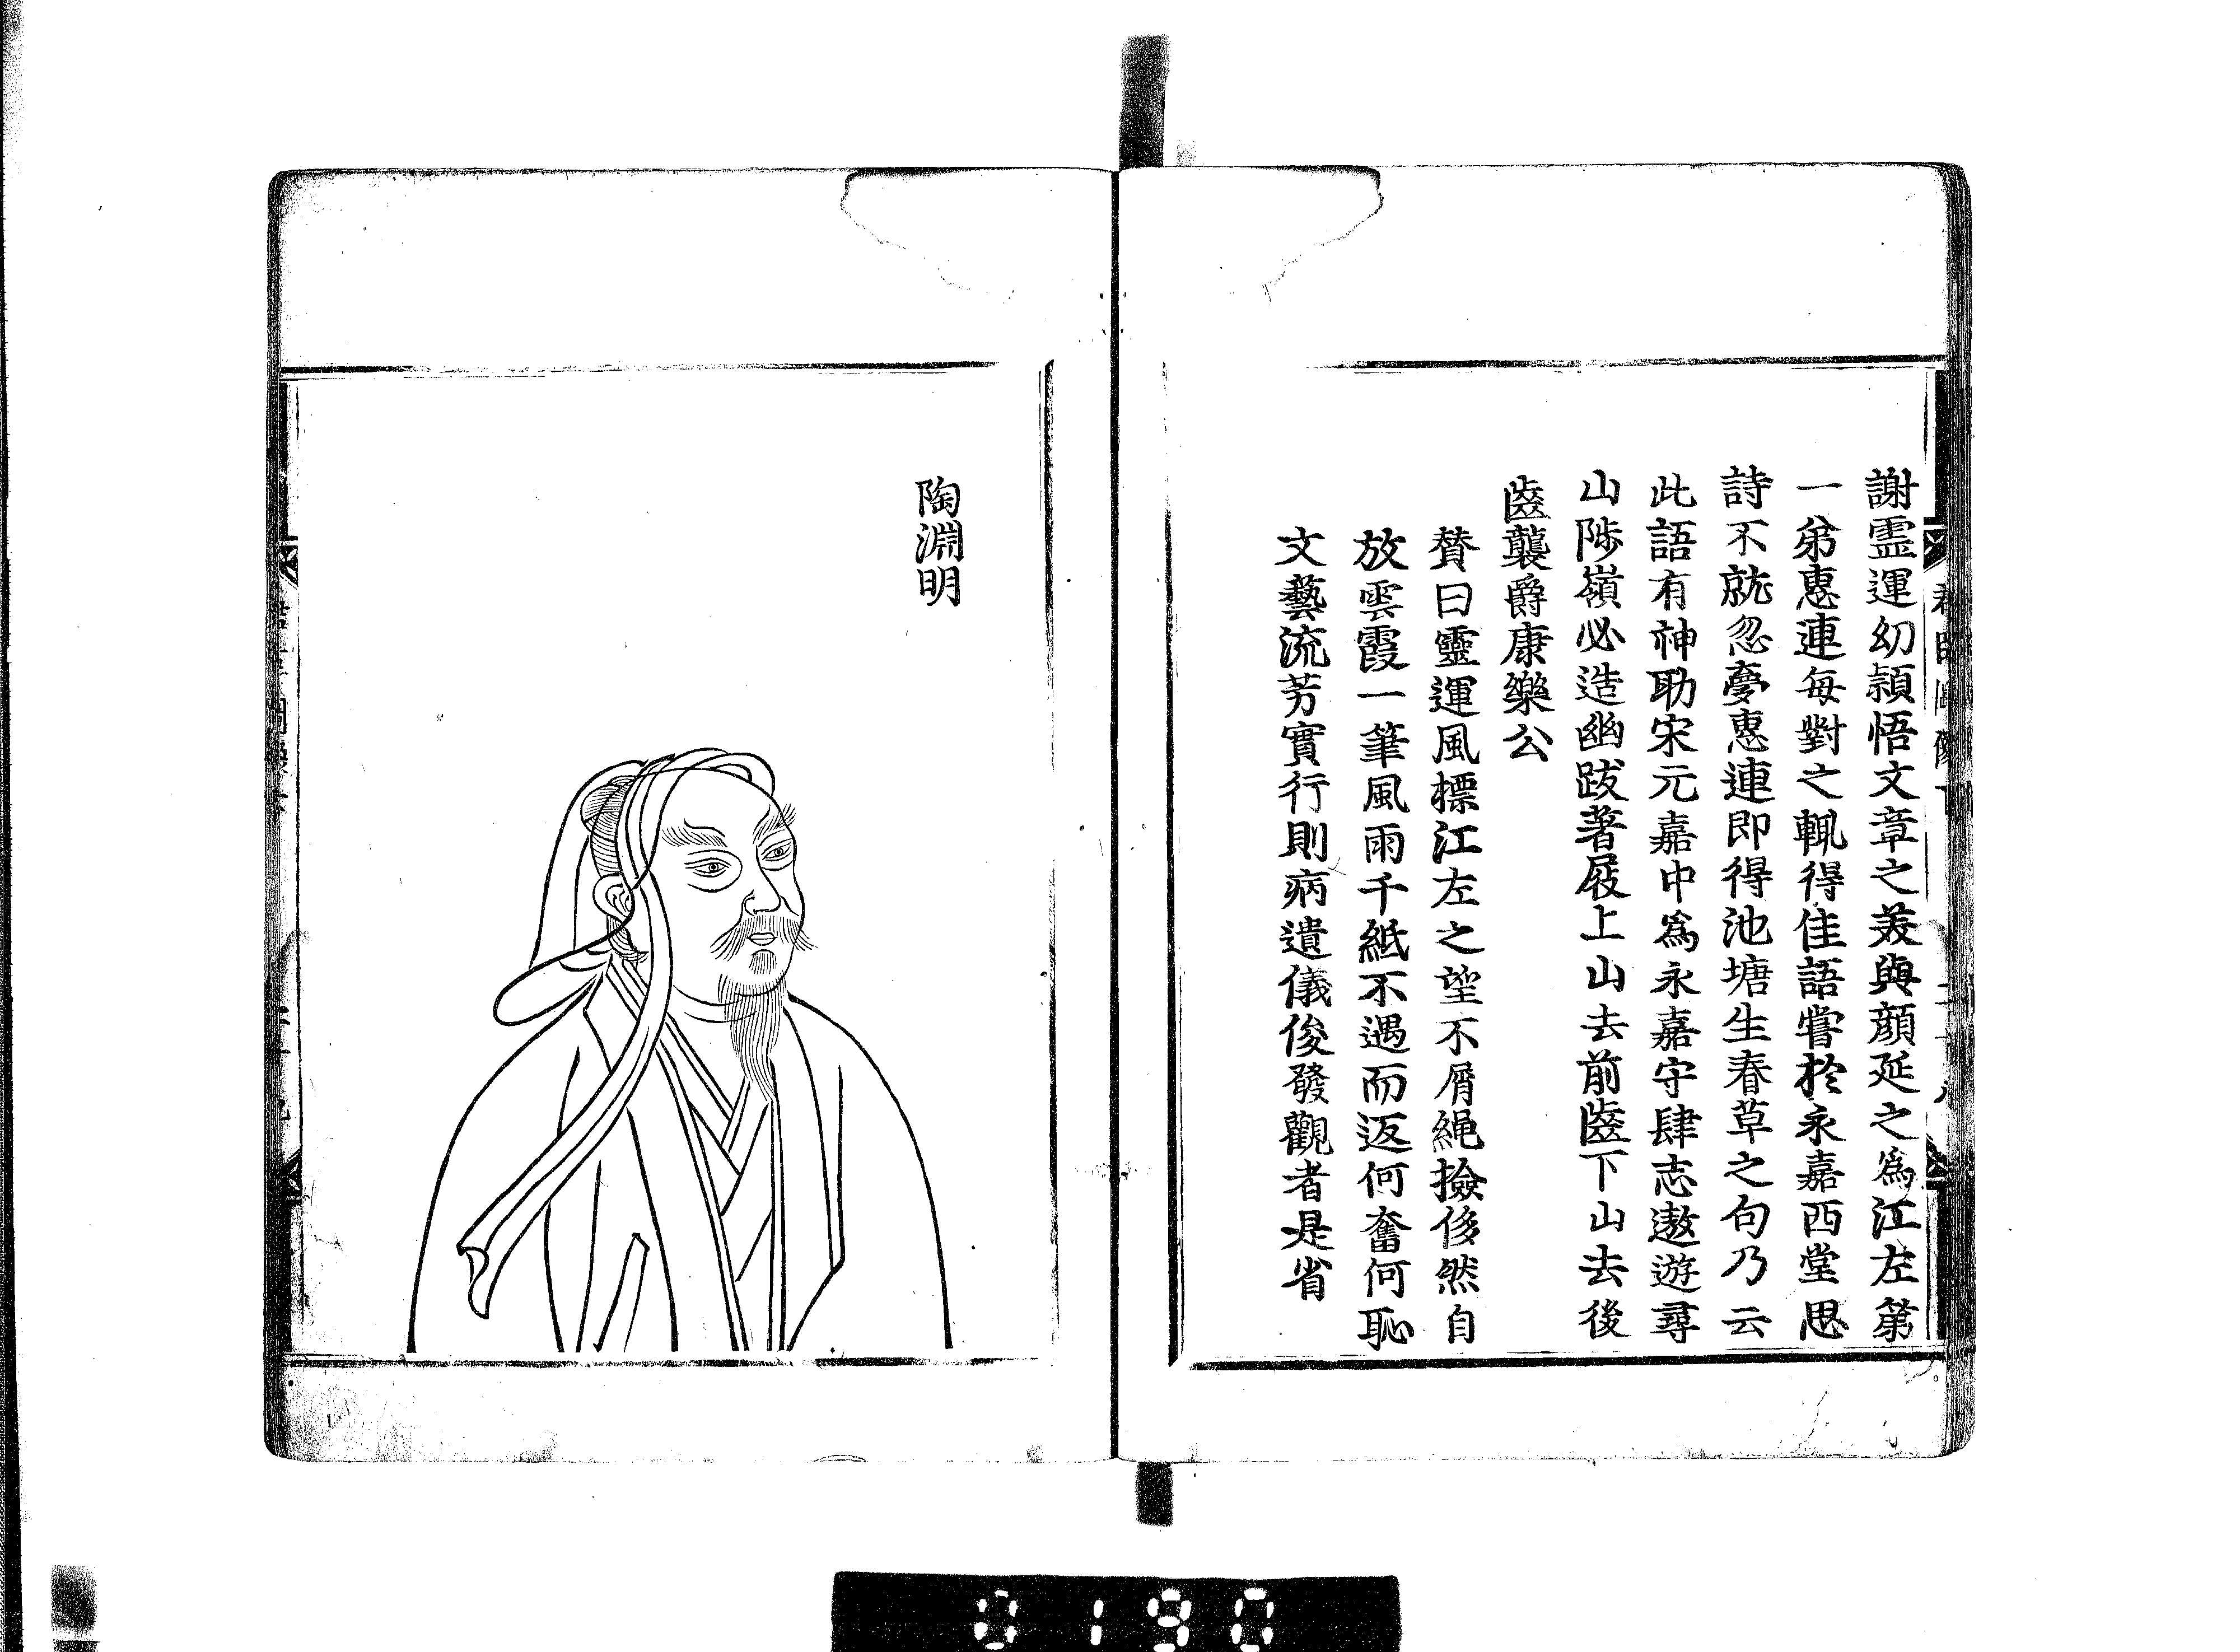 謝霊運幻頴悟文章之美與顔延之為江左第
一弟惠連每對之輒得佳語嘗於永嘉西堂思
詩不就忽夢惠連即得池塘生春草之句乃云
此語有神助宋元嘉中為永嘉守肆志遨遊尋
山陟嶺必造幽跋著屐上山去前齒下山去後
齒襲爵康樂公
賛曰靈運風標江左之望不屑繩撿侈然自
放雲霞一筆風雨千紙不遇而返何奮何恥
文藝流芳實行則病遺儀俊發觀者是省
陶淵明
0190